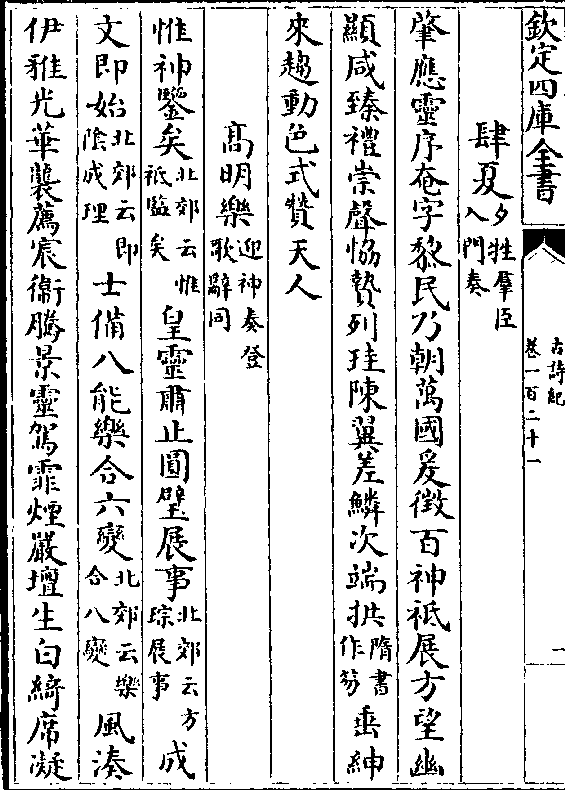 欽定四庫全書
古詩紀
卷一百二十一
一
肆夏夕牲羣臣入門奏
肇應靈序奄字黎民乃朝萬國爰徵百神祗展方望幽
顯咸臻禮崇聲恊贄列珪陳翼差鱗次端拱隋書作笏垂紳
來趨動色式贊天人
髙明樂迎神奏登歌辭同
惟神鑒矣北郊云惟祇監矣皇靈肅止圓璧展事北郊云方琮展事成
文即始北郊云即隂成理士備八能樂合六變北郊云樂合八變風湊
伊雅光華襲薦宸衞騰景靈駕霏煙嚴壇生白綺席凝